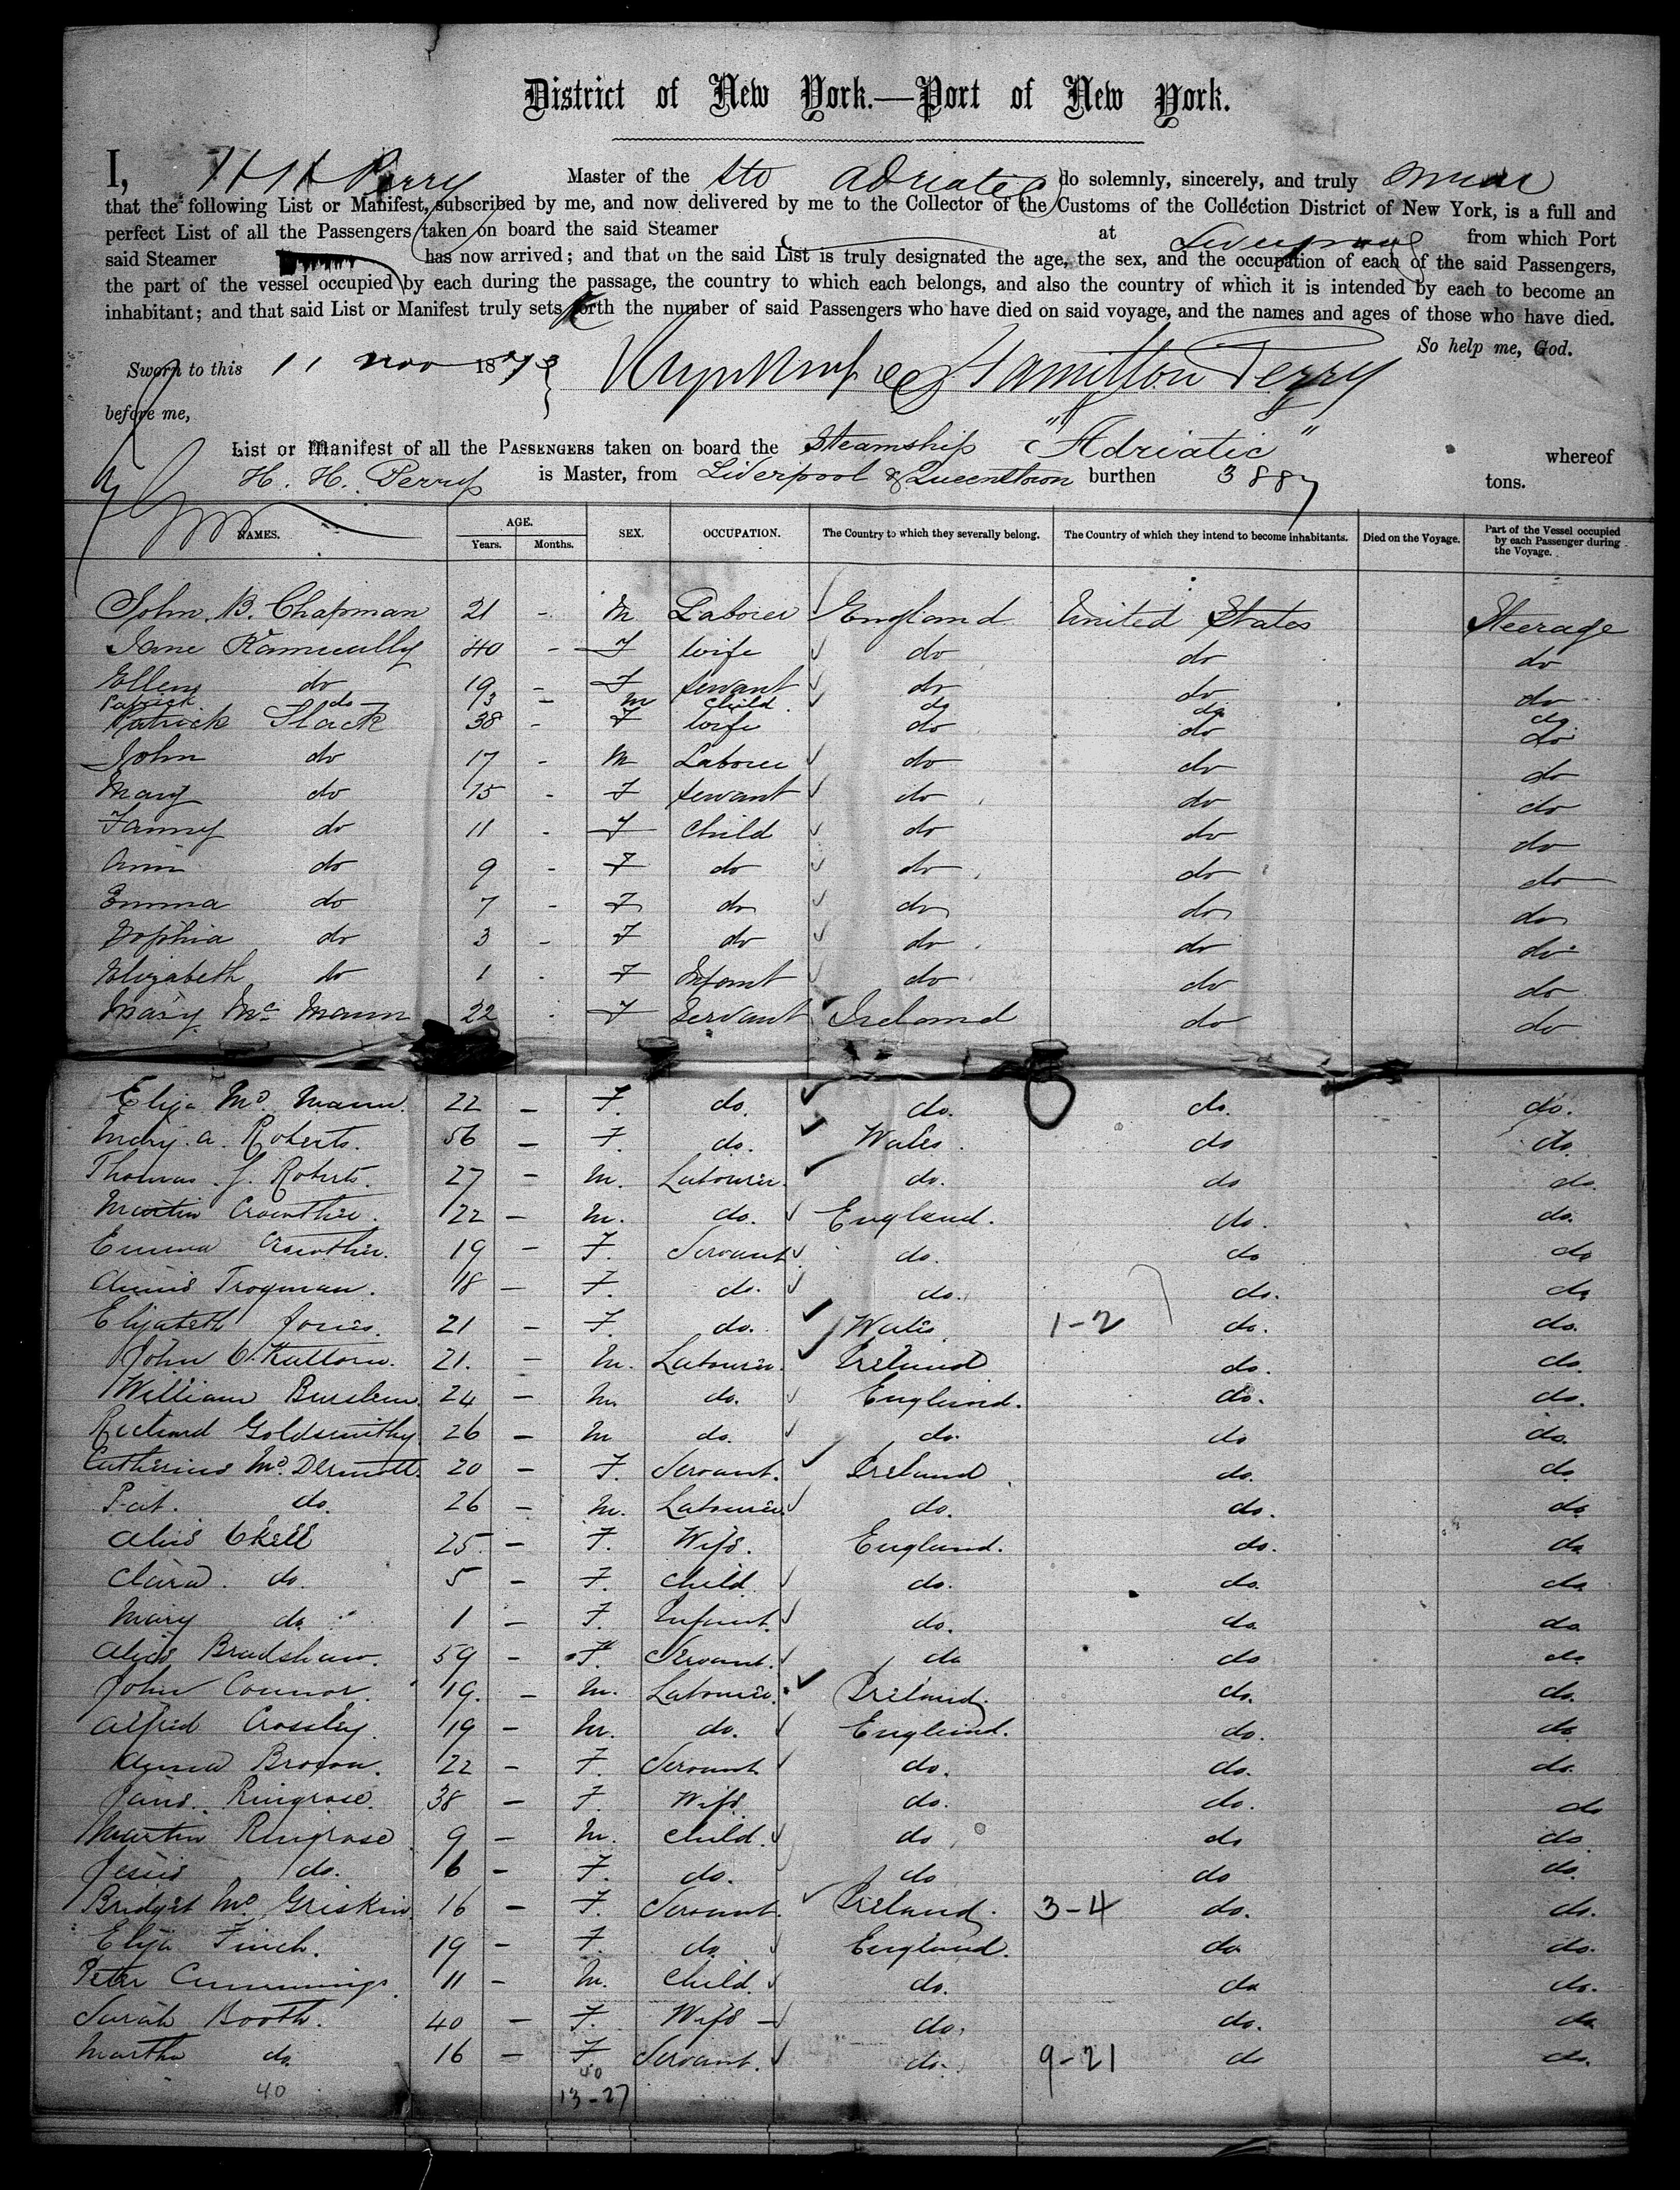 District of New York.—Port of New York.
I, H H Perry Master of the Str Adriatic do solemnly, sincerely, and truly swear
that the following List or Manifest, subscribed by me, and now delivered by me to the Collector of the Customs of the Collection District of New York, is a full and
perfect List of all the Passengers taken on board the said Steamer at Liverpool from which Port
said Steamer has now arrived; and that on the said List is truly designated the age, the sex, and the occupation of each of the said Passengers,
the part of the vessel occupied by each during the passage, the country to which each belongs, and also the country of which it is intended by each to become an
inhabitant; and that said List or Manifest truly sets forth the number of said Passengers who have died on said voyage, and the names and ages of those who have died.
So help me, God.
Sworn to this 11 Nov 1873 Hamilton Perry
before me,
List or Manifest of all the PASSENGERS taken on board the Steamship "Adriatic" whereof
H. H. Perry is Master, from Liverpool & Queenstown burthen 3887 tons.
NAMES. AGE. Years. Months. SEX. OCCUPATION. The Country to which they severally belong. The Country of which they intend to become inhabitants. Died on the Voyage. Part of the Vessel occupied by each Passenger during the Voyage.
John B. Chapman 21 - M Laborer England United States Steerage
Jane 40 - F wife do do do
Ellen do 19 - F servant do do do
Patrick do 13 - M child do do do
Patrick Slack 38 - F wife do do do
John do 17 - M Laborer do do do
Mary do 15 - F servant do do do
Fanny do 11 - F child do do do
Ann do 9 - F do do do do
Emma do 7 - F do do do do
Sophia do 3 - F do do do do
Elizabeth do 1 - F Infant do do do
Mary Mc Mann 22 - F Servant Ireland do do
Eliza Mc Mann. 22 - F. do. do. do. do.
Mary. a. Roberts. 56 - F. do. Wales. do do.
Thomas. J. Roberts. 27 - M. Labourer. do. do do.
Martin Crowther. 22 - M. do. England. do. do.
Emma Crowther. 19 - F. Servant. do. do do
Annie Trogman. 18 - F. do. do. do. do
Elizabeth Jones. 21 - F. do. Wales. 1-2 do. do.
John 21. - M. Labourer. Ireland do. do.
William Burslem. 24 - M. do. England. do. do.
Richard Goldsmithy 26 - M do. do. do do.
Catherine Mc. Dermott. 20 - F. Servant. Ireland do. do.
Pat. do. 26 - M. Labourer do. do. do.
Alice 25. - F. Wife. England. do. do
Clara. do. 5 - F. Child do. do. do
Mary do. 1 - F. Infant. do. do do
Alice Bradshaw. 59 - F. Servant. do do do
John Connor. 19. - M. Labourer. Ireland. do. do.
Alfred Crossley. 19 - M. do. England. do. do
Anna Brown. 22 - F. Servant do. do. do.
Jane. Ringrose. 38 - F. Wife. do. do. do
Martin Ringrose 9 - M. Child. do do do
Jessie do. 6 - F. do. do do do.
Bridget Mc Griskin. 16 - F. Servant. Ireland. 3-4 do. do.
Eliza Finch. 19 - F. do. England. do do.
Peter Cummings. 11 - M. Child. do. do do.
Sarah Booth. 40 - F. Wife - do. do. do
Martha do. 16 - F Servant. do. 9-21 do do.
40 40
13-27